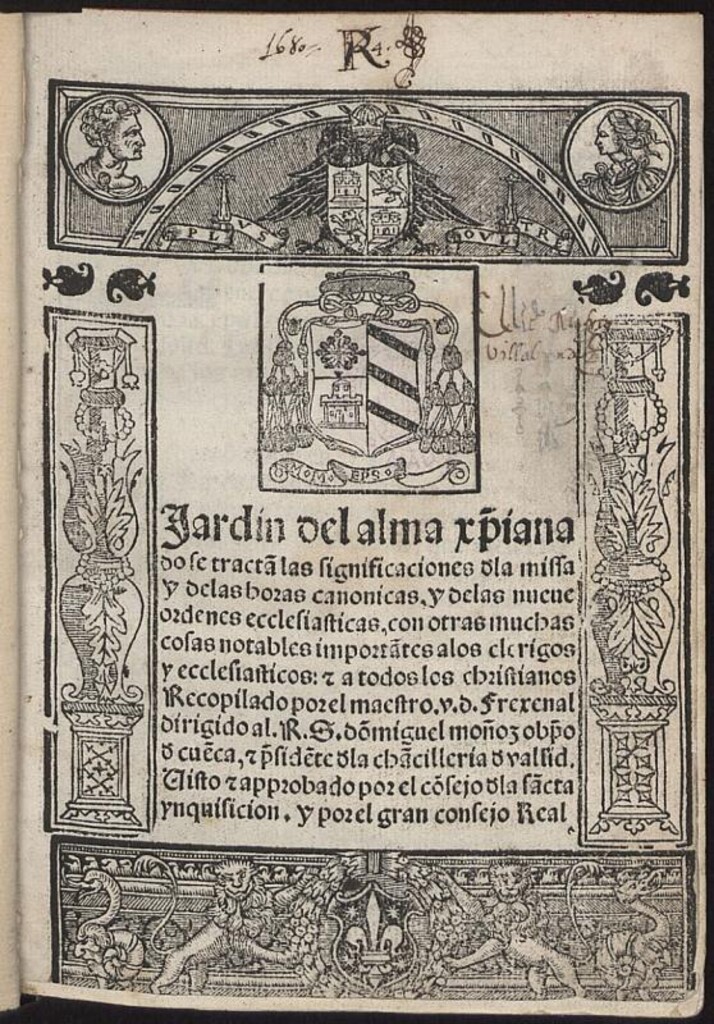 1680
R 4.
PLVS OVLTRE
MOMO EPSO
Jardin del alma xp̄iana
do se tractā las significaciones dla missa
y delas horas canonicas, y delas nueue
ordenes ecclesiasticas, con otras muchas
cosas notables importātes alos clerigos
y ecclesiasticos: ⁊ a todos los christianos
Recopilado por el maestro .v.d. Frexenal
dirigido al .R.S. dōmiguel moñoz obp̄o
d cuēca, ⁊ p̄sidēte dla chācilleria d vallid.
Uisto ⁊ approbado por el cōsejo dla sācta
ynquisicion. y por el gran consejo Real